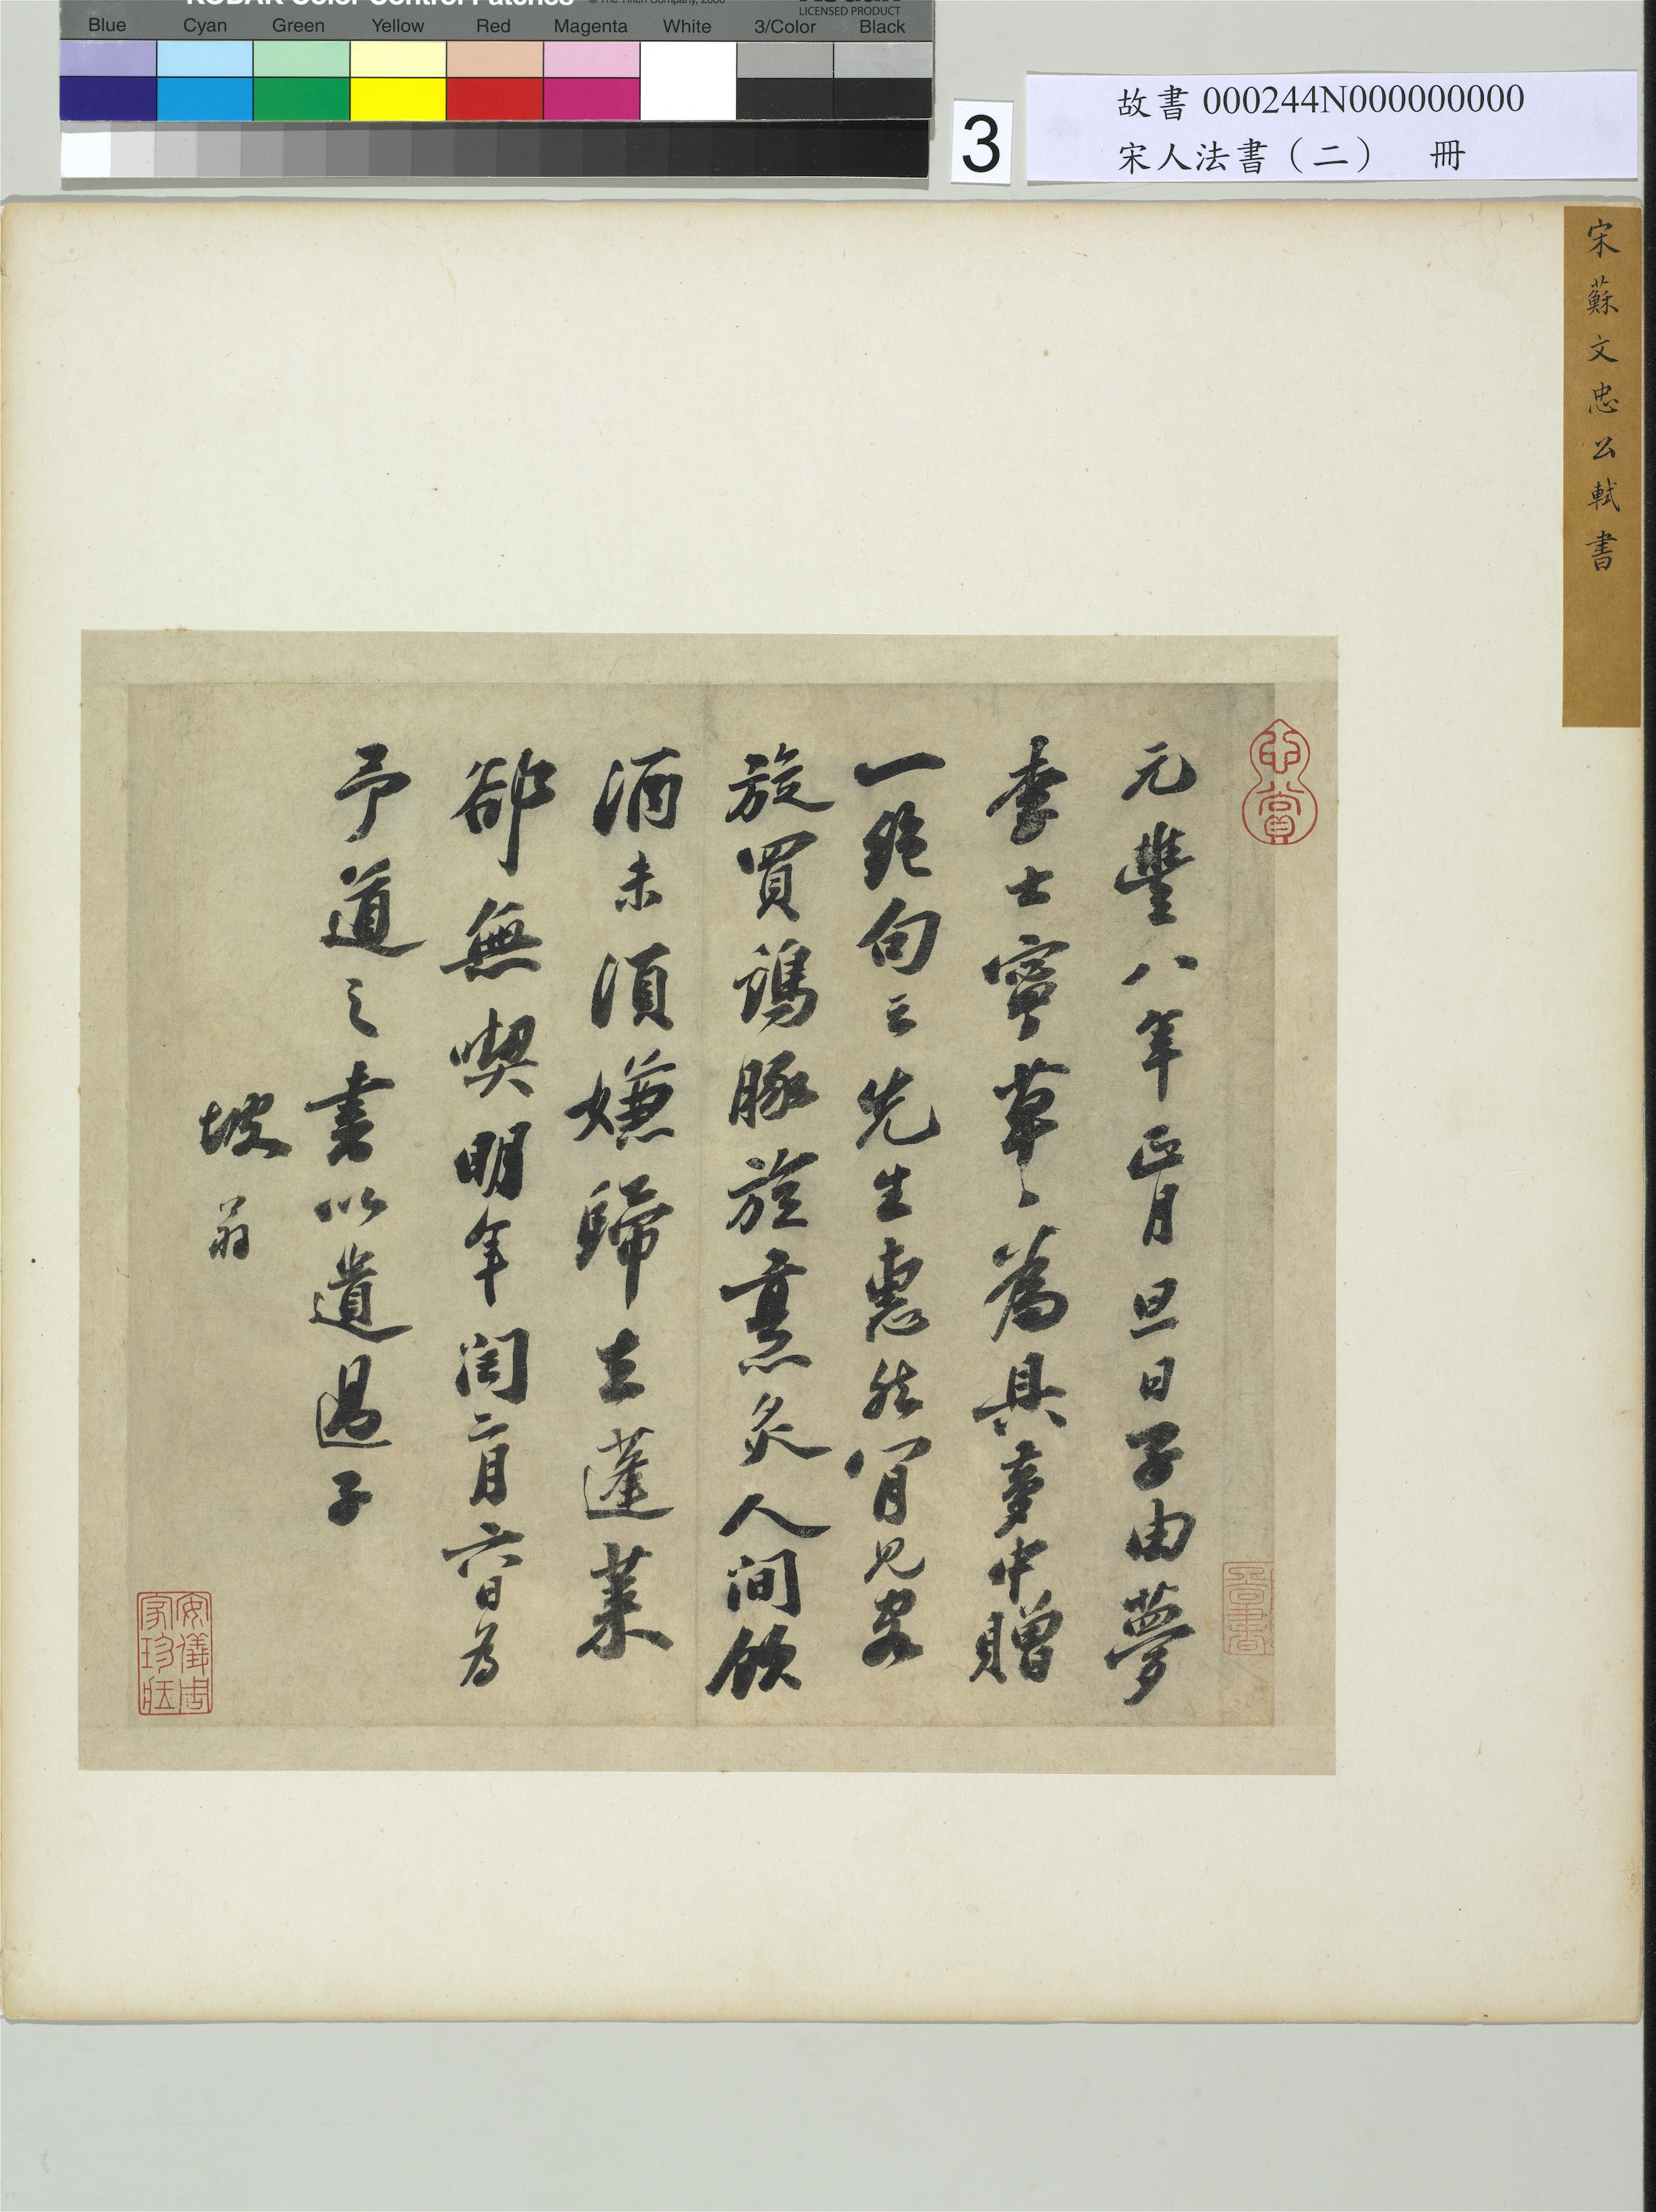 KODAK Color Control Patches
© The Tiffen Company, 2000
LICENSED PRODUCT
Blue Cyan Green Yellow Red Magenta White 3/Color Black
3
故書 000244N000000000
宋人法書（二）　冊
宋蘇文忠公軾書
元豐八年正月旦日子由夢
李士寧草草為具夢中贈
一絕句云先生惠然肯見客
旋買雞豚旋烹炙人間飲
酒未須嫌歸去蓬萊
卻無喫明年閏二月六日為
予道之書以遺過子
坡翁
心賞
安儀周
家珍藏